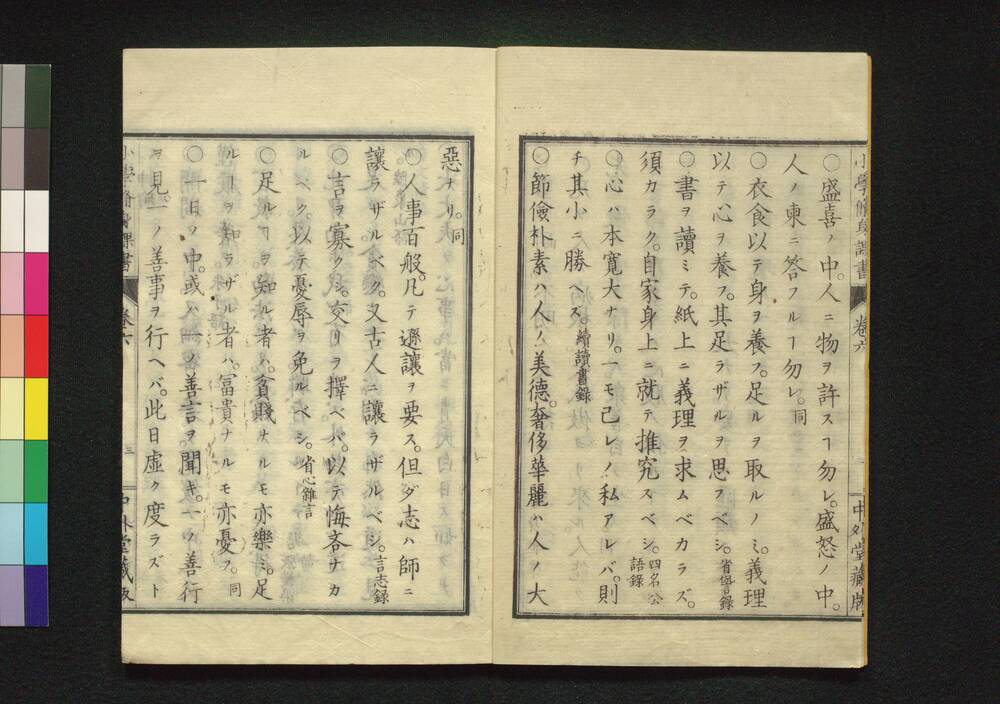 小學脩身課書 卷六 中外堂藏版
○盛喜ノ中。人ニ物ヲ許スヿ勿レ。盛怒ノ中。
人ノ柬ニ答フルヿ勿レ。同
○衣食以テ身ヲ養フ。足ルヲ取ルノミ。義理
以テ心ヲ養フ。其足ラザルヲ思フベシ。省𠎝録
○書ヲ讀ミテ。紙上ニ義理ヲ求ムベカラズ。
須カラク。自家身上ニ就テ推究スベシ。四名公語錄
○心ハ本寛大ナリ。一モ己レノ私アレバ。則
チ其小ニ勝ヘズ。續讀書錄
○節儉朴素ハ人ノ美德。奢侈華麗ハ人ノ大
惡ナリ。同
○人事百般。凡テ遜讓ヲ要ス。但ダ志ハ師ニ
讓ラザルベク。又古人ニ讓ラザルベシ。言志錄
○言ヲ寡クシ。交リヲ擇ベバ。以テ悔吝ナカ
ルベク。以テ憂辱ヲ免ルベシ。省心雜言
○足ルヿヲ知ル者ハ。貧賤ナルモ亦樂ミ。足
ルヿヲ知ラザル者ハ。冨貴ナルモ亦憂フ。同
○一日ノ中。或ハ一ノ善言ヲ聞キ。一ノ善行
ヲ見。一ノ善事ヲ行ヘバ。此日虛ク度ラズト
小學脩身課書 卷六 三 中外堂藏版